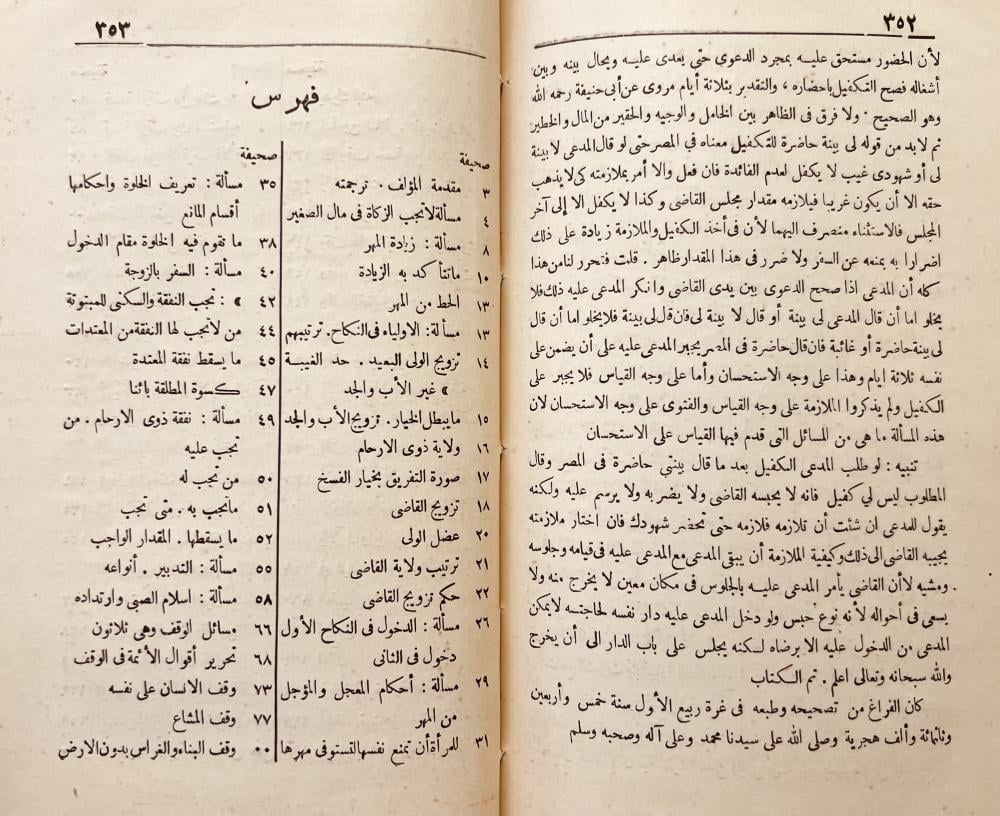 ٣٥٢
لأن الحضور مستحق عليه بمجرد الدعوى حتى يعدى عليه ويحال بينه وبين
أشغاله فصح التكفيل باحضاره ، والتقدير بثلاثة أيام مروى عن أبى حنيفة رحمه الله
وهو الصحيح . ولا فرق فى الظاهر بين الخامل والوجيه والحقير من المال والخطير
ثم لا بد من قوله لى بينة حاضرة للتكفيل معناه فى المصر حتى لو قال المدعى لا بينة
لى أو شهودى غيب لا يكفل لعدم الفائدة فان فعل والا أمر بملازمته كى لا يذهب
حقه الا أن يكون غريبا فيلازمه مقدار مجلس القاضى وكذا لا يكفل الا إلى آخر
المجلس فالاستثناء منصرف اليهما لأن فى أخذ الكفيل والملازمة زيادة على ذلك
اضرارا به بمنعه عن السفر ولا ضرر فى هذا المقدار ظاهر . قلت فتحرر لنا من هذا
كله أن المدعى اذا صحح الدعوى بين يدى القاضى وانكر المدعى عليه ذلك فلا
يخلو اما أن قال المدعى لى بينة أو قال لا بينة لى فان قال لى بينة فلا يخلو اما أن قال
لى بينة حاضرة أو غائبة فان قال حاضرة فى المصر يجبر المدعى عليه على أن يضمن على
نفسه ثلاثة ايام وهذا على وجه الاستحسان وأما على وجه القياس فلا يجبر على
الكفيل ولم يذكروا الملازمة على وجه القياس والفتوى على وجه الاستحسان لان
هذه المسألة ما هى من المسائل التى قدم فيها القياس على الاستحسان
تنبيه : لو طلب المدعى الكفيل بعد ما قال بينتى حاضرة فى المصر وقال
المطلوب ليس لي كفيل فانه لا يحبسه القاضى ولا يضر به ولا يرسم عليه ولكنه
يقول للمدعى ان شئت أن تلازمه فلازمه حتى تحضر شهودك فان اختار ملازمته
يجيبه القاضى الى ذلك وكيفية الملازمة أن يبقى المدعى مع المدعى عليه فى قيامه وجلوسه
ومشيه لا أن القاضى يأمر المدعى عليه بالجلوس فى مكان معين لا يخرج منه ولا
يسمى فى أحواله لأنه نوع حبس ولو دخل المدعى عليه دار نفسه لحاجته لا يمكن
المدعى من الدخول عليه الا برضاه لكنه يجلس على باب الدار الى أن يخرج
والله سبحانه وتعالى اعلم . تم الكتاب
كان الفراغ من تصحيحه وطبعه فى غرة ربيع الأول سنة خمس وأربعين
وثلثمائة وألف هجرية وصلى الله على سيدنا محمد وعلى آله وصحبه وسلم
٣٥٣
فهرس
صحيفة
٣ مقدمة المؤلف . ترجمته
٤ مسألة لا تجب الزكاة فى مال الصغير
٨ مسألة : زيادة المهر
١٠ ما تتأكد به الزيادة
١٣ الحط من المهر
١٣ مسألة : الاولياء فى النكاح . ترتيبهم
١٤ تزويج الولى البعيد . حد الغيبة
» غير الأب والجد
١٥ ما يبطل الخيار . تزويج الأب والجد
١٦ ولاية ذوى الارحام
١٧ صورة التفريق بخيار الفسخ
١٨ تزويج القاضى
٢٠ عضل الولى
٢١ ترتيب ولاية القاضى
٢٢ حكم تزويج القاضى
٢٦ مسألة : الدخول فى النكاح الأول
دخول فى الثانى
٢٩ مسألة : أحكام المعجل والمؤجل
من المهر
٣١ للمرأة أن تمنع نفسها لتستوفى مهرها
صحيفة
٣٥ مسألة : تعريف الخلوة واحكامها
أقسام المانع
٣٨ ما تقوم فيه الخلوة مقام الدخول
٤٠ مسألة : السفر بالزوجة
٤٢ » : تجب النفقة والسكنى للمبتوتة
٤٤ من لا تجب لها النفقة من المعتدات
٤٥ ما يسقط نفقة المعتدة
٤٧ كسوة المطلقة بائنا
٤٩ مسألة : نفقة ذوى الارحام . من
تجب عليه
٥٠ من تجب له
٥١ ما تجب به . متى تجب
٥٢ ما يسقطها . المقدار الواجب
٥٥ مسألة : التدبير . أنواعه
٥٨ مسألة : اسلام الصبى وارتداده
٦٦ مسائل الوقف وهى ثلاثون
٦٨ تحرير أقوال الأئمة فى الوقف
٧٣ وقف الانسان على نفسه
٧٧ وقف المشاع
٠٠ وقف البناء والغراس بدون الارض